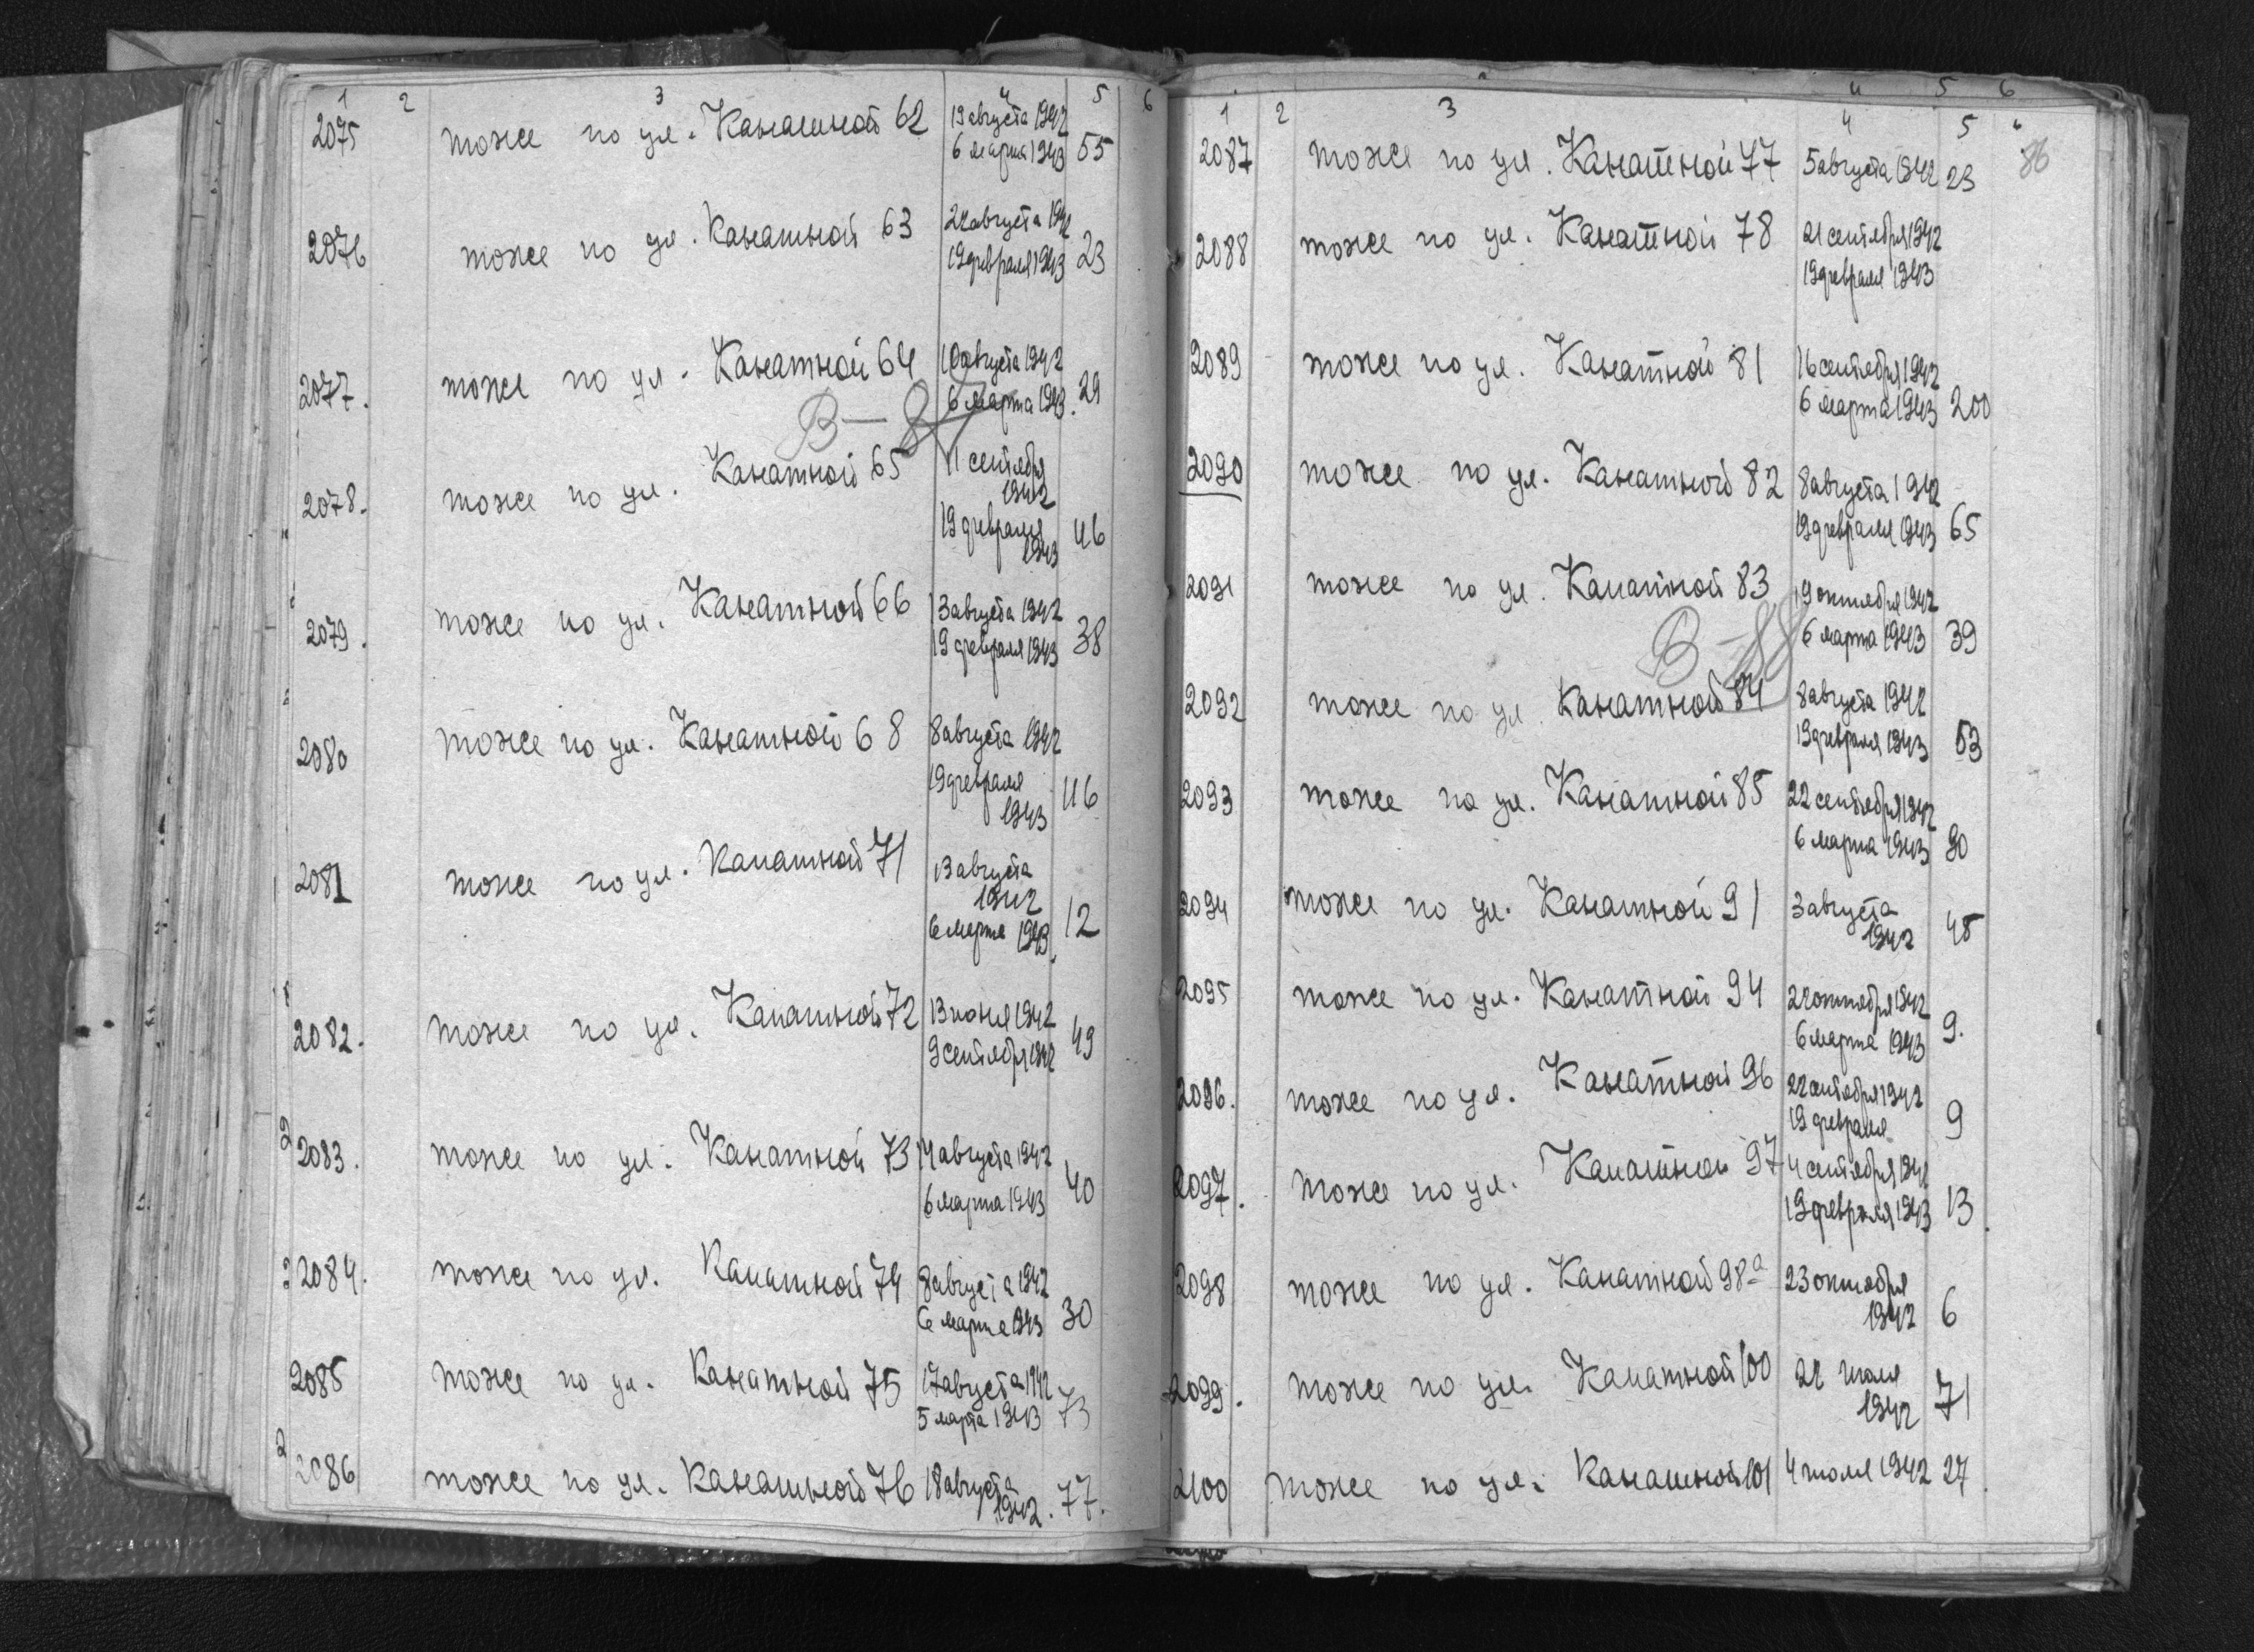 1 2 3 4 5 6
2075 тоже по ул. Канатной 62 19 августа 1942
6 марта 1943 55
2076 тоже по ул. Канатной 63 22 августа 1942
19 февраля 1943 23
2077. тоже по ул. Канатной 64 10 августа 1942
6 марта 1943. 29
В-87
2078. тоже по ул. Канатной 65 11 сентября
1942
19 февраля 46
1943
2079. тоже по ул. Канатной 66 13 августа 1942
19 февраля 1943 38
2080 тоже по ул. Канатной 68 8 августа 1942
19 февраля 46
1943
2081 тоже по ул. Канатной 71 13 августа
1942
6 марта 1943. 12
2082. тоже по ул. Канатной 72 13 июня 1942
9 сентября 1942 49
2083. тоже по ул. Канатной 73 14 августа 1942
6 марта 1943 40
2084. тоже по ул. Канатной 74 8 августа 1942
6 марта 1943 30
2085 тоже по ул. Канатной 75 17 августа 1942
5 марта 1943 73
2086 тоже по ул. Канатной 76 18 августа
1942. 77.
1 2 3 4 5 6
86
2087 тоже по ул. Канатной 77 5 августа 1942 23
2088 тоже по ул. Канатной 78 21 сентября 1942
19 февраля 1943
2089 тоже по ул. Канатной 81 16 сентября 1942
6 марта 1943 200
2090 тоже по ул. Канатной 82 8 августа 1942
19 февраля 1943 65
2091 тоже по ул. Канатной 83 19 октября 1942
6 марта 1943 39
В-88
2092 тоже по ул. Канатной 84 8 августа 1942
19 февраля 1943 53
2093 тоже по ул. Канатной 85 22 сентября 1942
6 марта 1943 90
2094 тоже по ул. Канатной 91 3 августа
1942 45
2095 тоже по ул. Канатной 94 22 октября 1942
6 марта 1943 9.
2096. тоже по ул. Канатной 96 22 октября 1942
19 февраля 9
2097. тоже по ул. Канатной 97 4 сентября 1942
19 февраля 1943 13.
2098 тоже по ул. Канатной 98а 23 октября
1942 6
2099. тоже по ул. Канатной 100 22 июля
1942 71
2100 тоже по ул. Канатной 101 4 июля 1942 27.